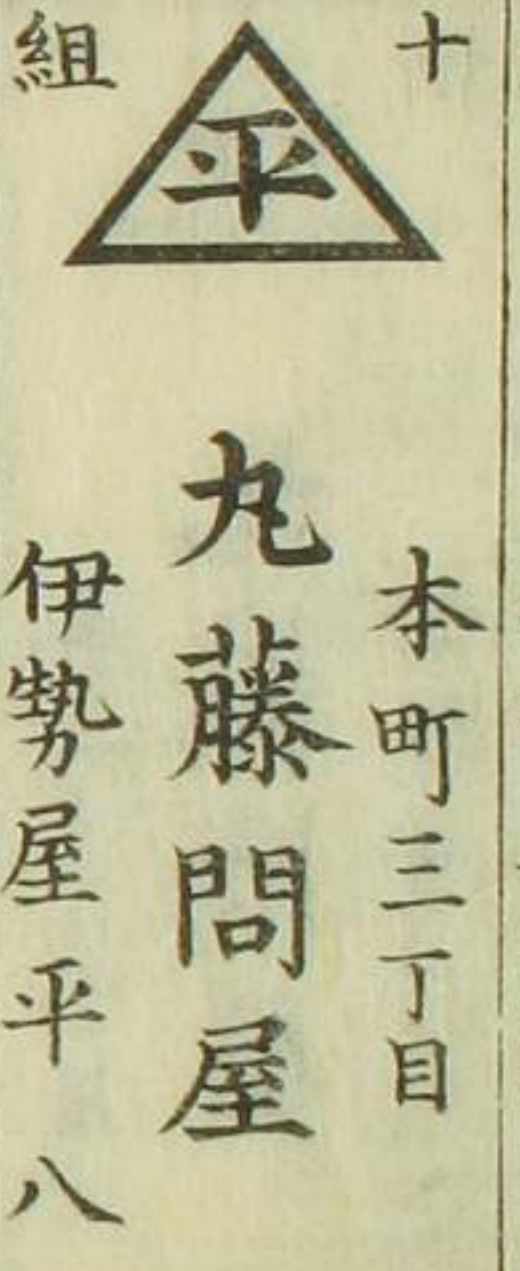 十組
平
本町三丁目
丸藤問屋
伊勢屋平八